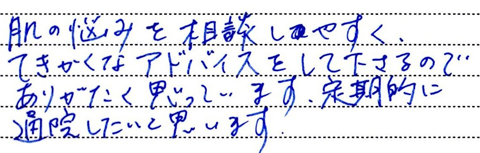 肌の悩みを相談しやすく、
てきかくなアドバイスをして下さるので
ありがたく思っています。定期的に
通院したいと思います。